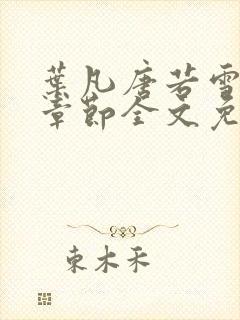 葉凡唐若雪
章節全文免
東木禾